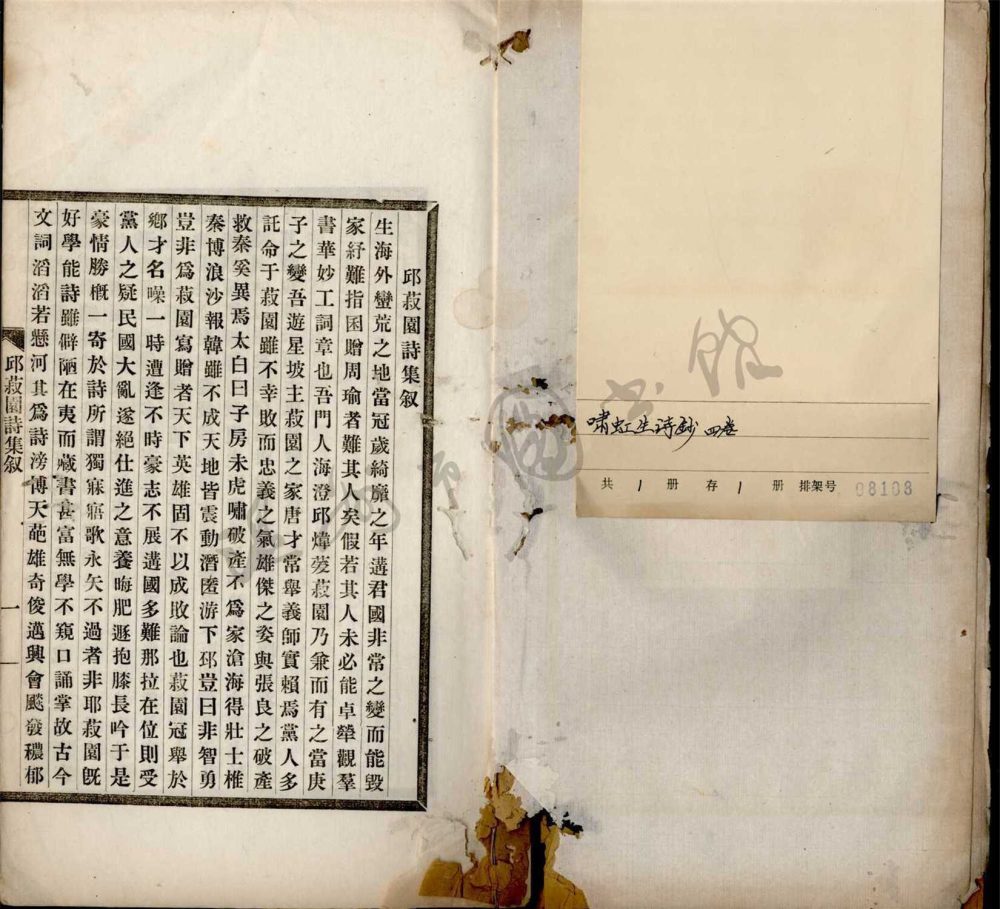 啸虹生诗钞 四卷
共 1 册 存 1 册 排架号 08103
邱菽園詩集叙
生海外蠻荒之地當冠歲綺靡之年遘君國非常之變而能毀
家紓難指囷贈周瑜者難其人矣假若其人未必能卓犖觀羣
書華妙工詞章也吾門人海澄邱煒萲菽園乃兼而有之當庚
子之變吾遊星坡主菽園之家唐才常舉義師實賴焉黨人多
託命于菽園雖不幸敗而忠義之氣雄傑之姿與張良之破產
救秦奚異焉太白曰子房未虎嘯破產不爲家滄海得壯士椎
秦博浪沙報韓雖不成天地皆震動潛匿游下邳豈曰非智勇
豈非爲菽園寫贈者天下英雄固不以成敗論也菽園冠舉於
鄉才名噪一時遭逢不時豪志不展遘國多難那拉在位則受
黨人之疑民國大亂遂絕仕進之意養晦肥遯抱膝長吟于是
豪情勝槪一寄於詩所謂獨寐寤歌永矢不過者非耶菽園旣
好學能詩雖僻陋在夷而藏書甚富無學不窺口誦掌故古今
文詞滔滔若懸河其爲詩滂博天葩雄奇俊邁興會飈發穠郁
邱菽園詩集叙
一